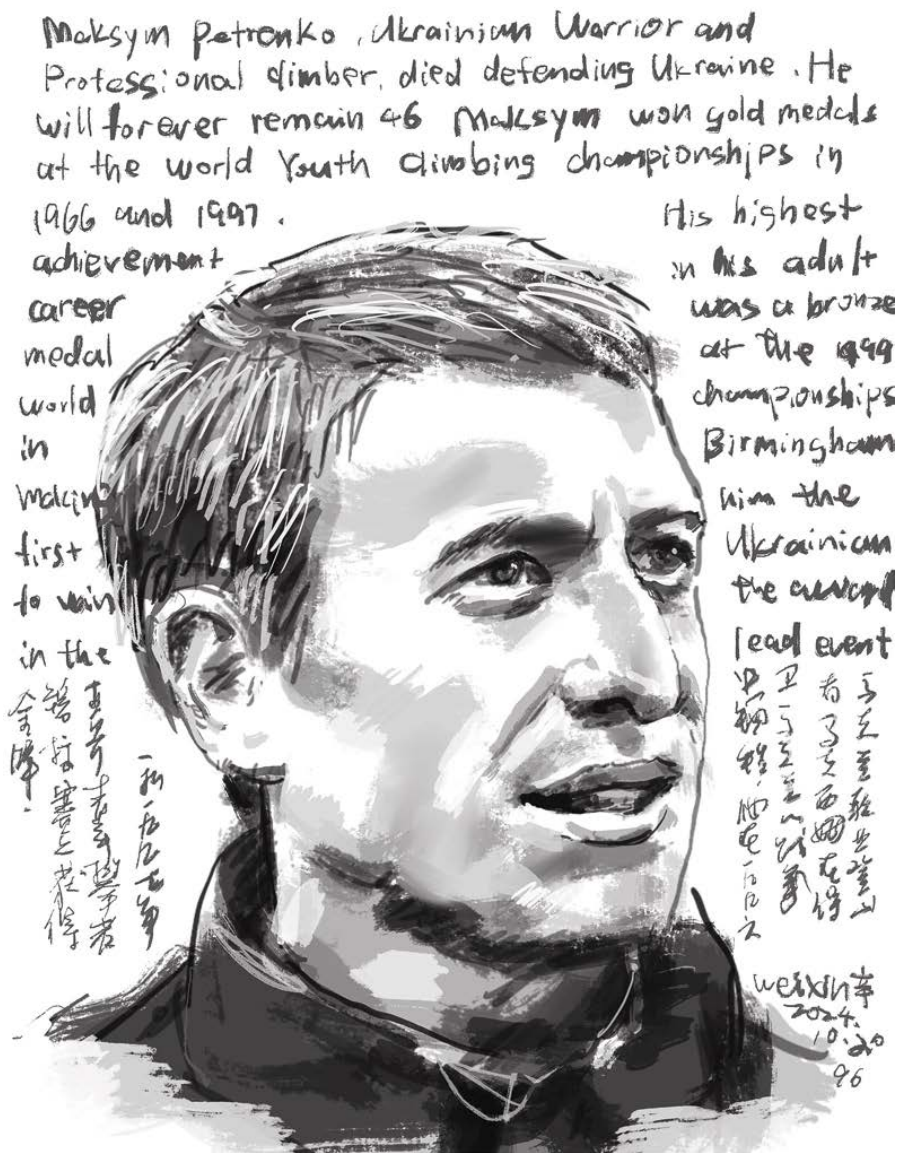 Maksym Petrenko, Ukrainian Warrior and
Professional climber, died defending Ukraine. He
will forever remain 46 Maksym won gold medals
at the world Youth Climbing championships in
1966 and 1997. His highest
achievement in his adult
career was a bronze
medal at the 1999
world championships
in Birmingham
making him the
first Ukrainian
to win the award
in the lead event
乌克兰职业登山
者马克西姆在保
卫乌克兰的战争
一九九七年
青年
登 赛上获得
金牌.
weixin
2024.
10.20
96